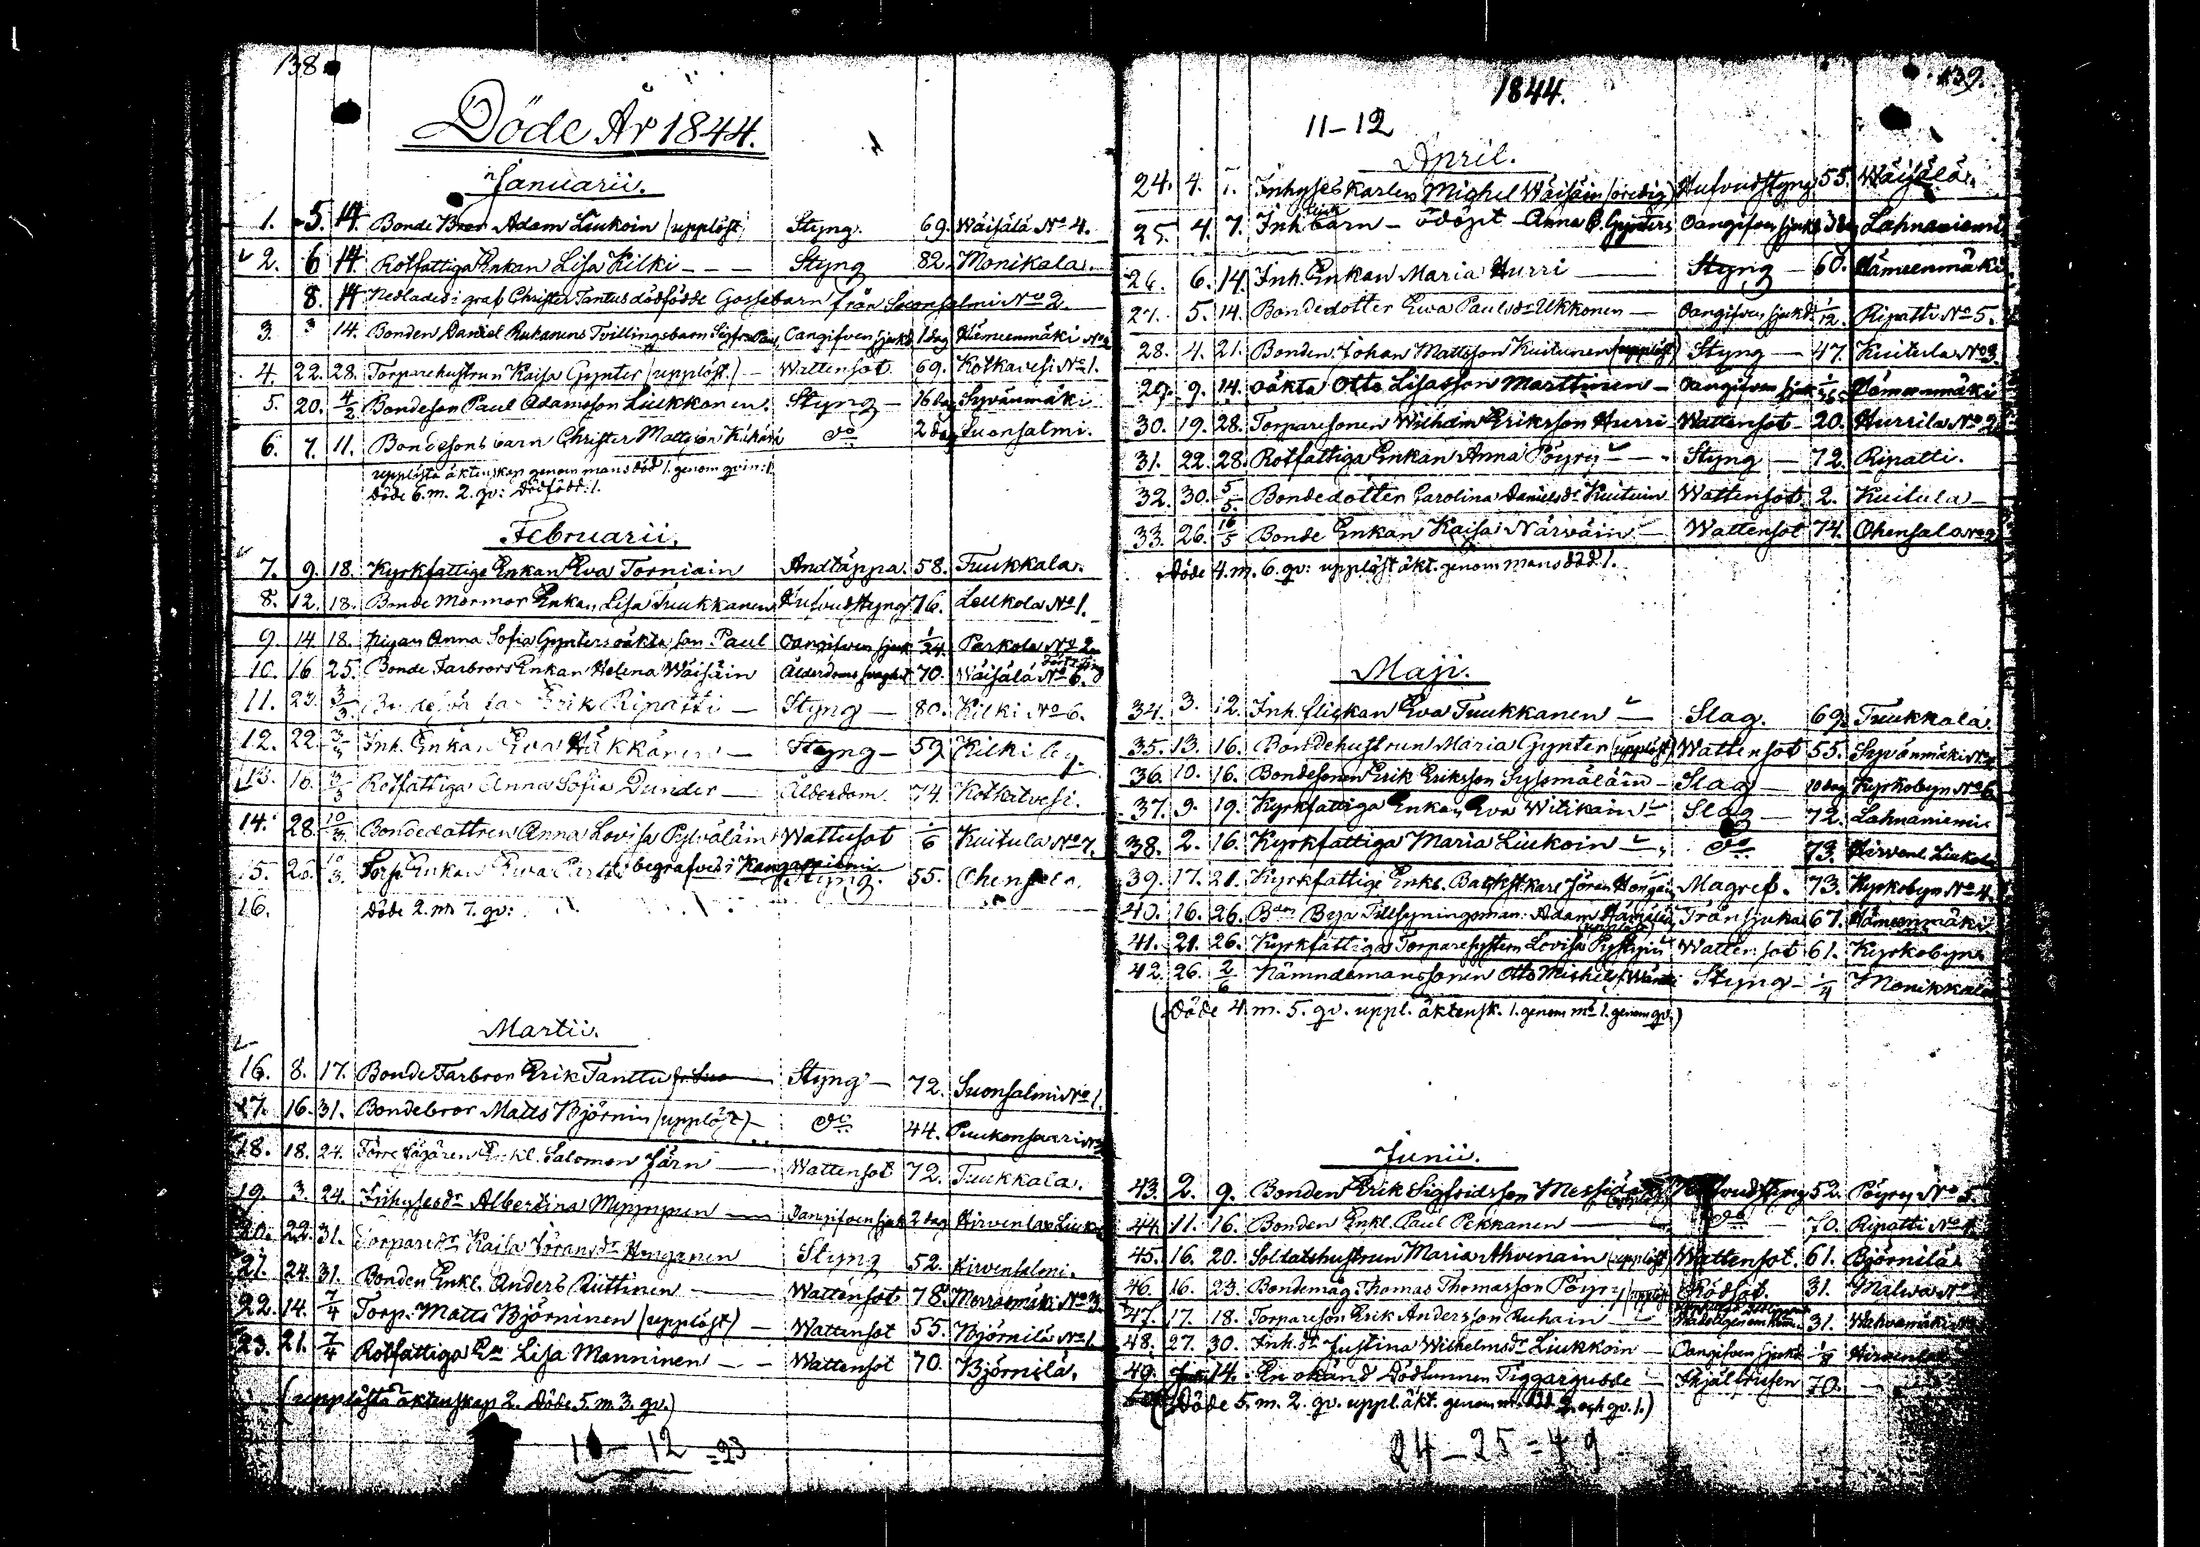 138.
Döde År 1844.
Januarii.
1. 5. 14. Bonde Bror Adam Liukoin (upplöst) Styng. 69. Wäisälä No 4.
2. 6 14. Rotfattiga Enkan Lisa Kilki Styng 82. Monikala.
8. 14 Nedlades i graf Christer Tantus dödfödde Gossebarn från Suonsalmi No 2.
3. 3 14. Bonden Daniel Ruhanens Tvillingsbarn Oangifven sjukd. 1 dag Hämeenmäki No 2
4. 22. 28. Torparehustrun Kaisa Gynter (upplöst.) Wattensot 69. Kotkavesi No 1.
5. 20. 4/2 Bondeson Paul Adamsson Liukkonen. Styng 16 dag Syvänmäki
6. 7. 11. Bondesons barn Christer Mattsson do 2 dag Suonsalmi.
upplösta äktenskap genom mans död 1. genom qvin: 1.
Döde 6. m. 2. qv: Dödfödd: 1.
Februarii.
7. 9. 18. Kyrkfattige Enkan Eva Torniain Andtäppa 58. Tuukkala.
8. 12. 18. Bonde Mormor Enkan Lisa Tuukkanen Hufvudstyng 76. Leukola No 1.
9. 14 18. Pigan Anna Sofia Gynters oäkta son Paul Oangifven sjuk 1/24. Parkola No 2
10. 16 25. Bonde Farbrors Enkan Helena Wäisäin Ålderdoms svaghet 70. Wäisälä No 6.
11. 23. 3/3. Erik Ripatti Styng 80. Kilki No 6.
12. 22 3/3 Inh. Enkan Eva Häkkänen Styng 59 Kilki by.
13. 16. 3/3 Rotfattiga Anna Sofia Dunder Ålderdom. 74. Kotkatvesi.
14. 28. 10/3. Bondedottren Anna Lovisa Pylväläin Wattusot 1/6 Kuitula No 7.
15. 26. 10/3. Torp. Enkan Ewa begrafved i Kangasniemi Styng. 55. Ohensala.
16. Döde 2. m 7. qv:
Martii.
16. 8. 17. Bonde Farbror Erik Tanttu Styng 72. Suonsalmi No 1.
17. 16. 31. Bondebror Matts Björnin (upplöst) do 44. Puukonsaari
18. 18. 24. Förre Enkl. Salomon Järn Wattensot 72. Tuukkala.
19. 3. 24. Inhysesdr Albertina Oangifven sjuk 2 dag Hirvenlax
20. 22. 31. Torparedr Kaisa Göransdr Styng 52. Hirvensalmi.
21. 24. 31. Bonden Enkl. Anders Ruttinen Wattensot 78. No 3
22. 14. 7/4 Torp. Matts Björninen (upplöst) Wattensot 55. Björnilä No 1
23. 21. 7/4 Rotfattiga En Lisa Manninen Wattensot 70. Björnilä.
(upplösta äktenskap 2. Döde 5. m. 3. qv.)
11 - 12 = 23
139.
1844.
11-12
April.
24. 4. 7. Inhyses karlen Michel Wäisäin (oredig) Hufvudstyng 55. Wäisälä.
25. 4. 7. Inh. barn - odöpt Anna Gynters Oangifven sjukd 3 dag Lahnaniemi
26. 6. 14. Inh. Enkan Maria Hurri Styng 60. Hämeenmäki
27. 5. 14. Bondedotter Ewa Paulsdr Ukkonen Oangifven sjukd. 1/12. Ripatti No 5.
28. 4. 21. Bonden Johan Mattsson Kuitunen (upplöst) Styng 47. Kuitula No 3.
29. 9. 14. oäkta Otto Lisasson Marttinen Oangifven sjuk Hämeenmäki
30. 19. 28. Torparesonen Wilhelm Eriksson Hurri Wattensot 20. Hurrila No 2
31. 22. 28. Rotfattiga Enkan Anna Pöyry Styng 72. Ripatti.
32. 30. 5/5. Bondedotter Carolina Danielsdr Kuituin Wattensot 2. Kuitula
33. 26. 16/5 Bonde Enkan Kaisa Närwäin Wattensot 74. Ohensalo No 2
Döde 4. m. 6. qv: upplöst äkt. genom mans död 1.
Maji.
34. 3. 12. Inh. flickan Eva Tuukkanen Slag. 69. Tuukkala.
35. 13. 16. Bondehustrun Maria Gynter (upplöst) Wattensot 55. Syvänmäki
36. 10. 16. Bondesonen Erik Eriksson Sysmäläin Slag 10 dag Kyrkobyn No 6
37. 9. 19. Kyrkfattiga Enkan Eva Witikain Slag 72. Lahnaniemi
38. 2. 16. Kyrkfattiga Maria Liukoin do 73.
39. 17. 21. Kyrkfattige Enkl. Jöran Magref. 73. Kyrkobyn No 4.
40. 16. 26. Tillsyningsman Adam Trånsjuka 67. Hämeenmäki
41. 21. 26. Kyrkfattiga Torparesystern Lovisa Wattensot 61. Kyrkobyn.
42. 26. 2/6 Nämndemanssonen Otto Michels Styng 1/4 Monikkala
(Döde 4. m. 5. qv. uppl. äktensk. 1. genom m 1. genom qv.)
Junii.
43. 2. 9. Bonden Erik Sigfridsson Hufvudstyng 52. Pöyry No 5.
44. 11. 16. Bonden Enkl. Paul Pekkanen do 70. Ripatti
45. 16. 20. Soldatshustrun Maria Ahvenain (upplöst) Wattensot. 61. Björnilä.
46. 16. 23. Bondemåg Thomas Thomasson Pöyry (upplöst) Rödsot. 31. Malwa
47. 17. 18. Torpareson Erik Andersson Ruhain 31. Wahvamäki
48. 27. 30. Inh. dr Justina Wilhelmsdr Liukkoin Oangifven sjukd 1/8
49. 14. En okänd Dödfunnen Tiggargubbe Ihjälfrusen 70.
(Döde 5. m. 2. qv. uppl. äkt. genom m. död 2. och qv. 1.)
24 - 25 = 49